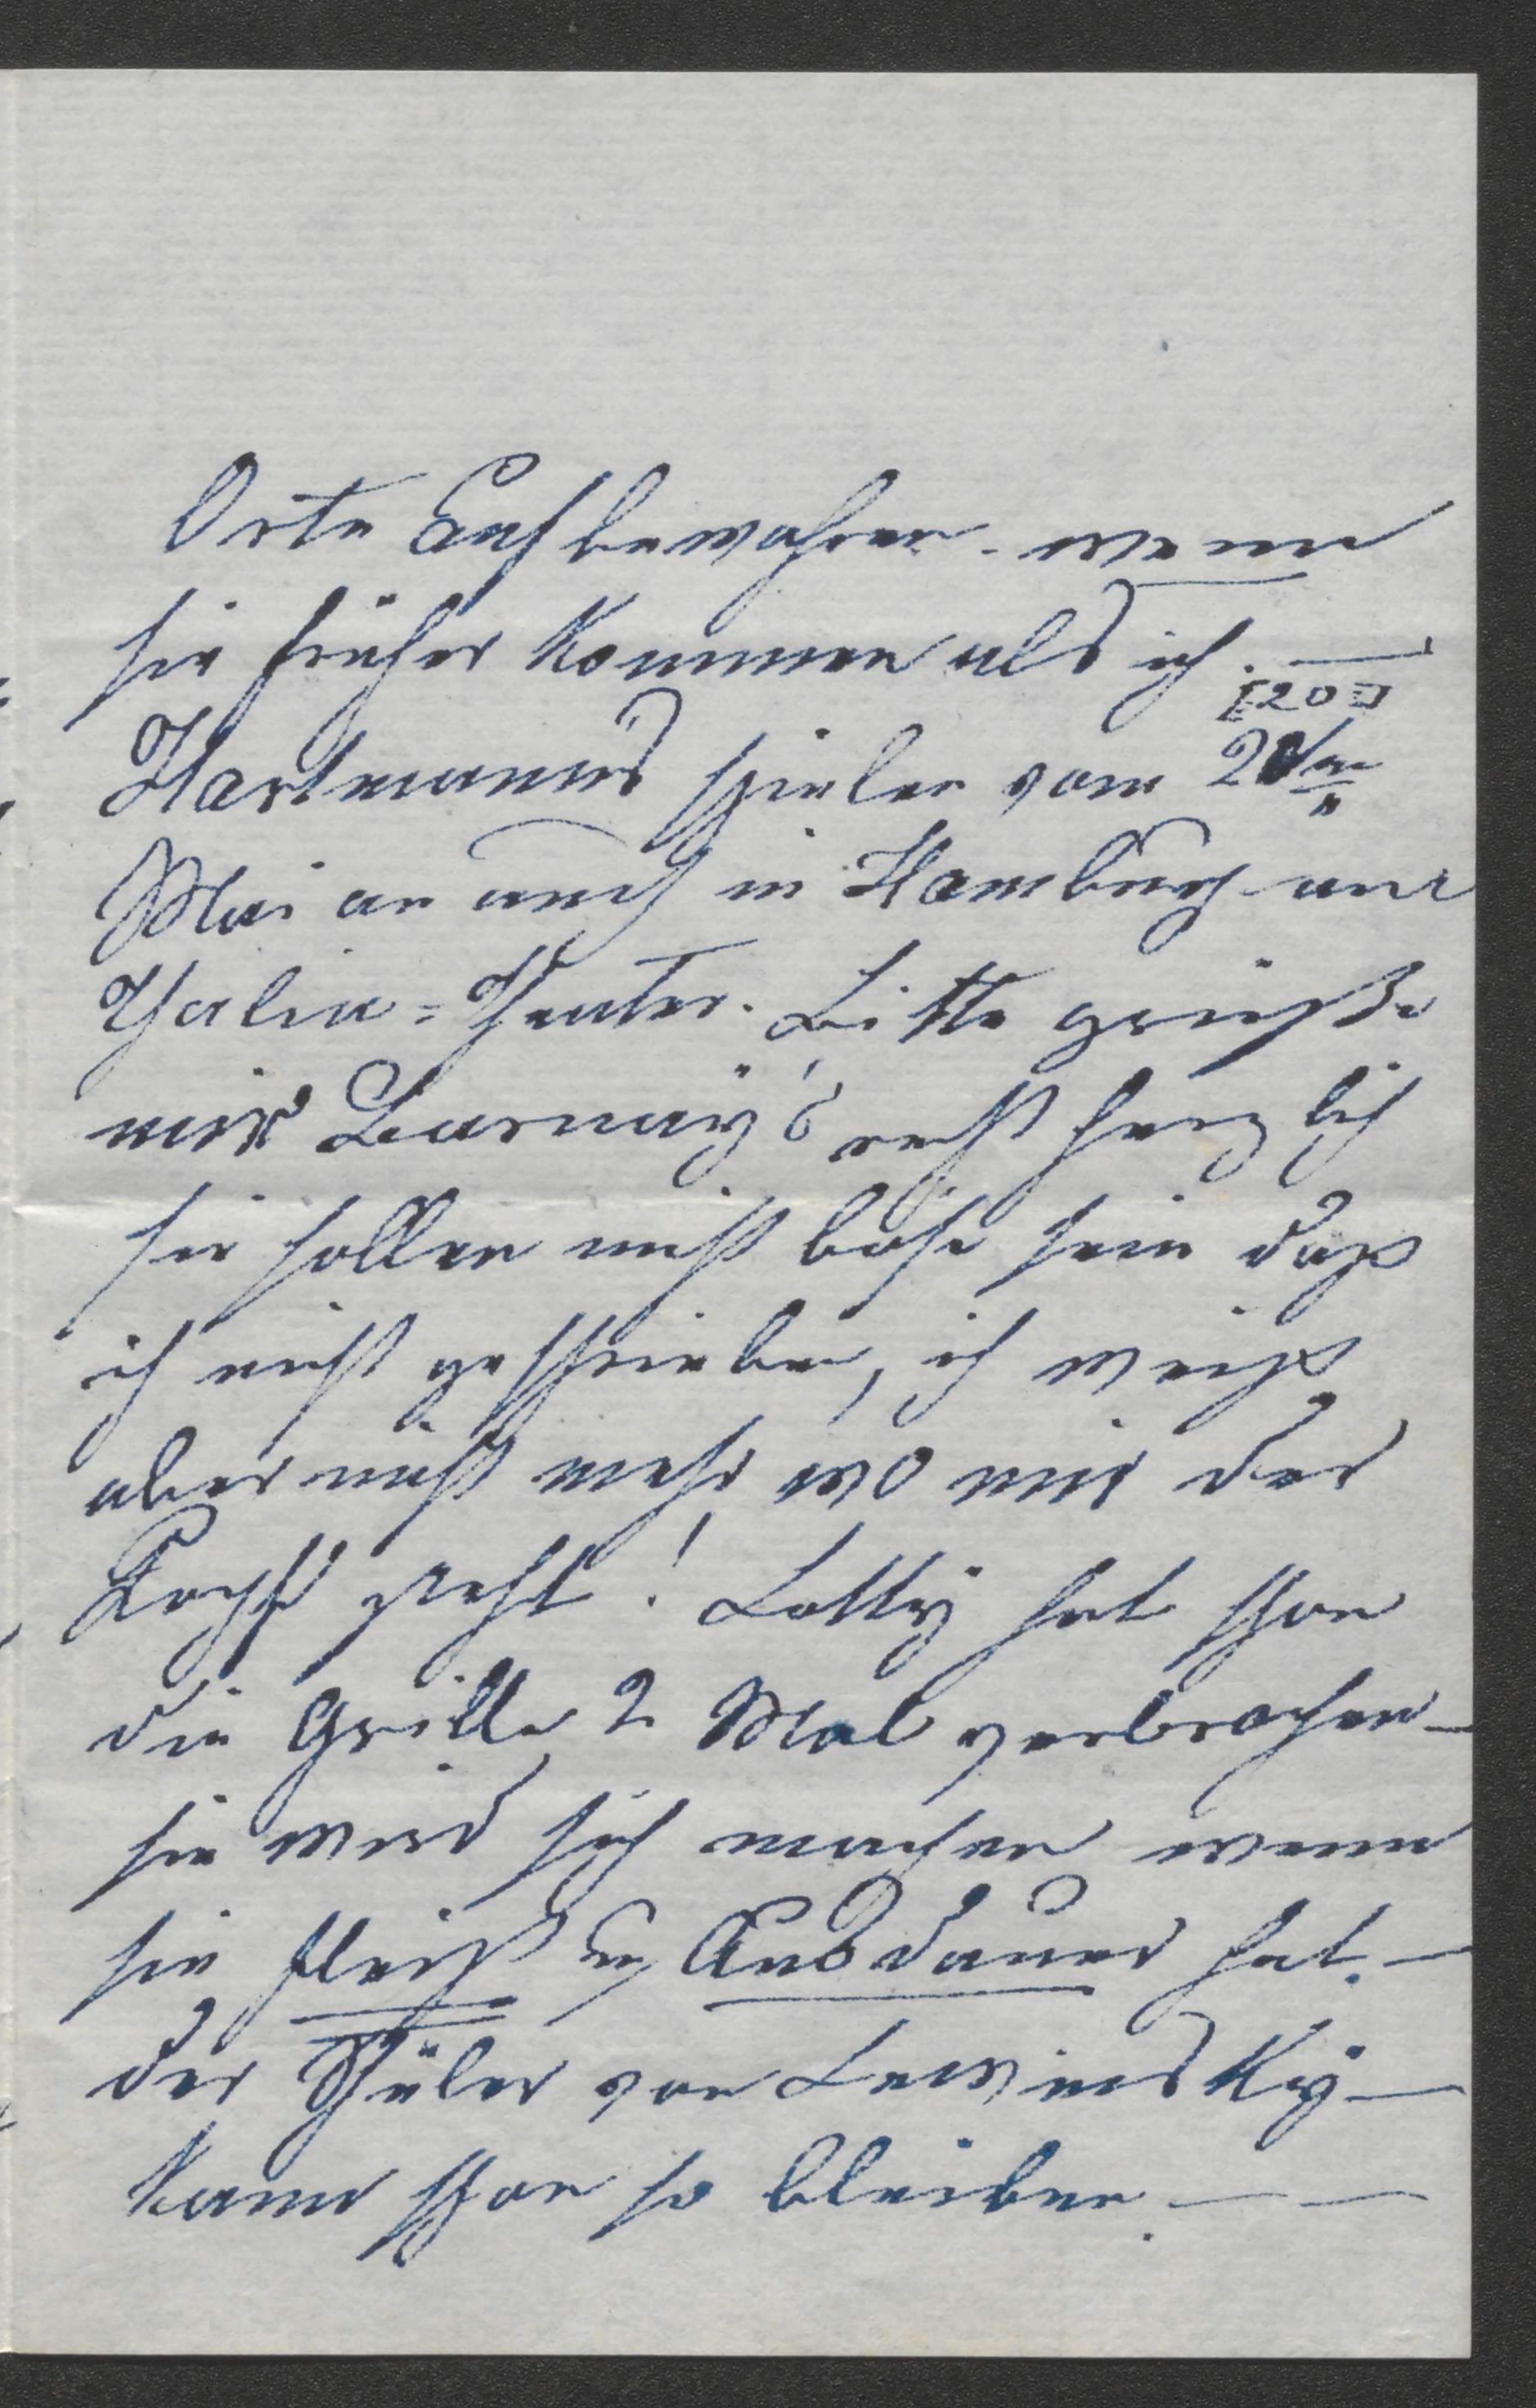 Orte aufbewahren - wenn
sie früher kommen als ich. —
[20]
Hartmanns spielen vom 20ten
Mai an auch in Hamburg am
Thalia=Theater. Bitte grüße
mir Barnaÿ's recht herzlich
sie sollen nicht böse sein daß
ich nicht geschrieben, ich weiß
aber nicht mehr wo mir der
Kopf steht! Lottÿ hat schon
die Grille 2 Mal verbrochen —
sie wird sich machen wenn
sie Fleiß u Ausdauer hat. —
der Schüler von Lewinskÿ —
kann schon so bleiben. — —